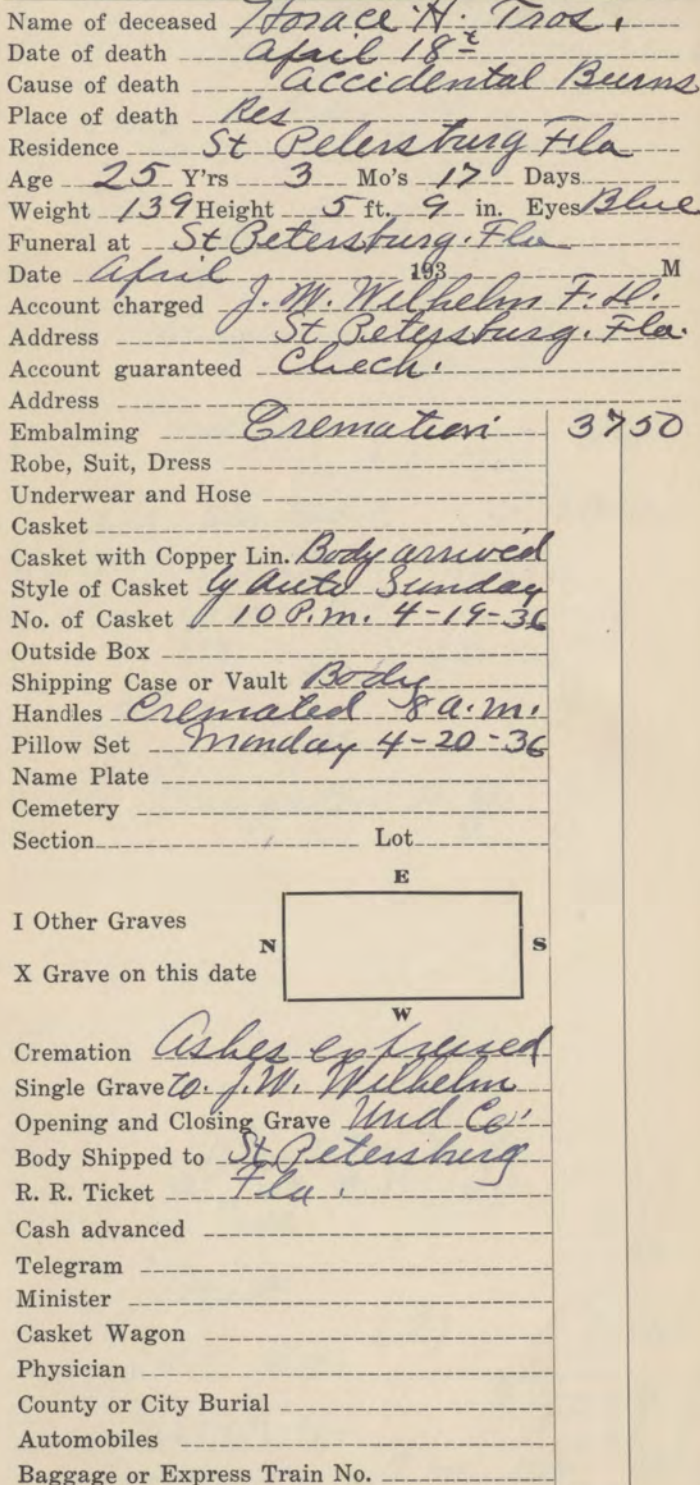 Name of deceased Horace H. Tros.
Date of death April 18
Cause of death Accidental Burns
Place of death Res
Residence St Petersburg Fla
Age 25 Y'rs 3 Mo's 17 Days
Weight 139 Height 5 ft. 9 in. Eyes Blue
Funeral at St Petersburg. Fla
Date April 193 M
Account charged J. M. Wilhelm F. H.
Address St Petersburg. Fla.
Account guaranteed Check.
Address
Embalming Cremation 37 50
Robe, Suit, Dress
Underwear and Hose
Casket
Casket with Copper Lin. Body arrived
Style of Casket by Auto Sunday
No. of Casket 10 P.m. 4-19-36
Outside Box
Shipping Case or Vault Body
Handles Cremated 8 a.m.
Pillow Set Monday 4-20-36
Name Plate
Cemetery
Section Lot
E
I Other Graves
N S
X Grave on this date
W
Cremation Ashes expressed
Single Grave to. J. W. Wilhelm
Opening and Closing Grave Und Co.
Body Shipped to St Petersburg
R. R. Ticket Fla.
Cash advanced
Telegram
Minister
Casket Wagon
Physician
County or City Burial
Automobiles
Baggage or Express Train No.